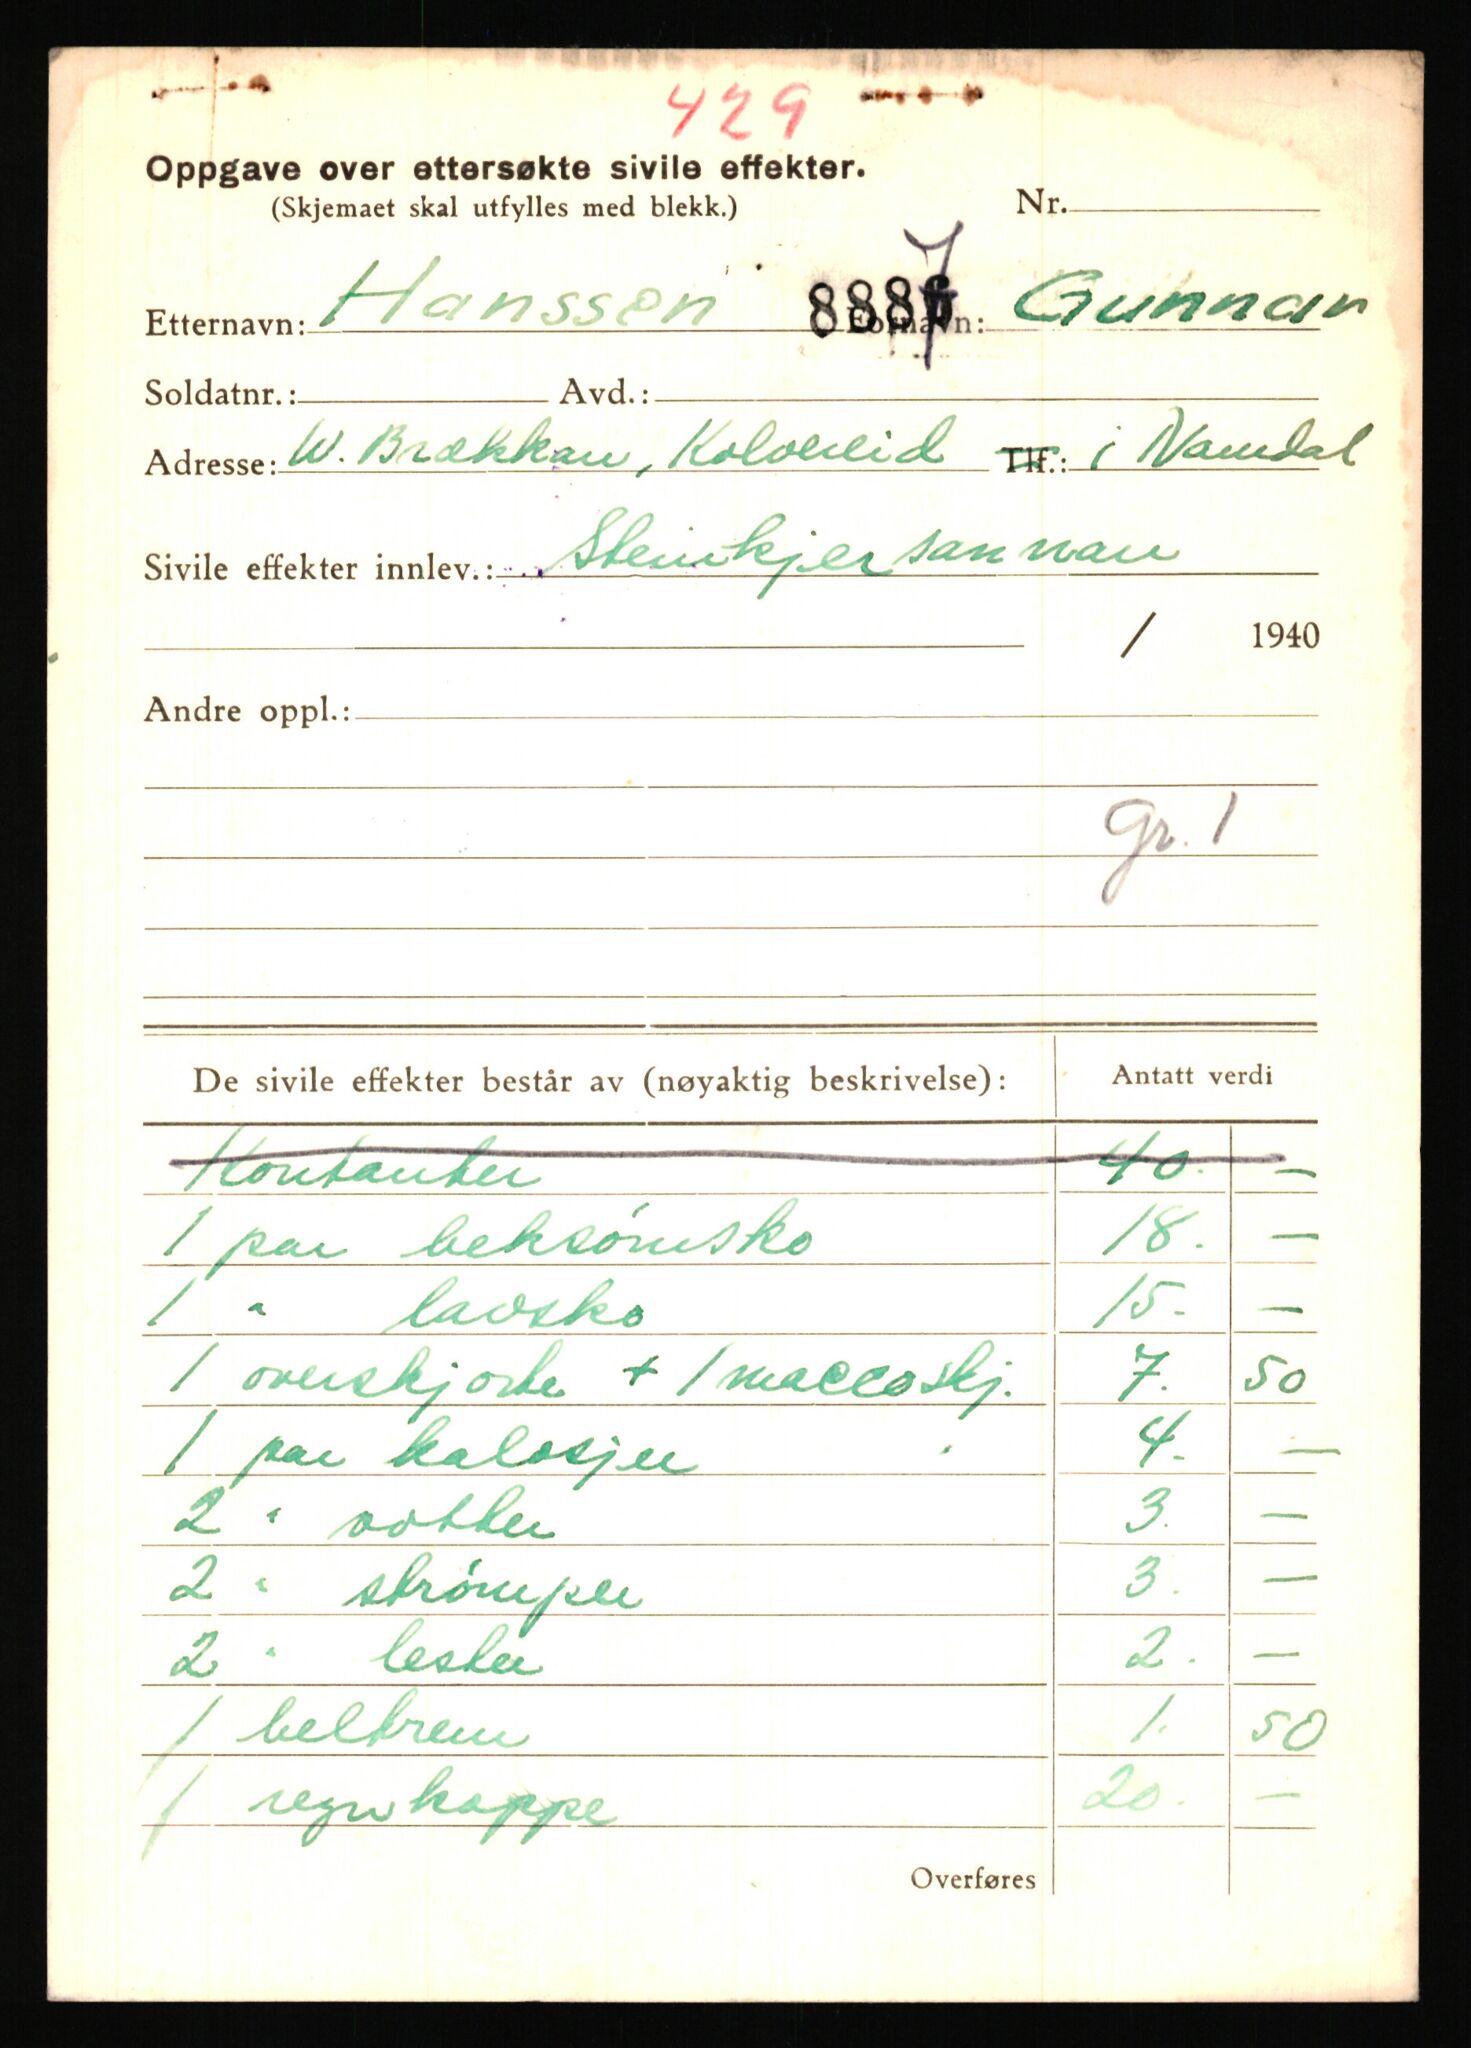 429
Oppgave over ettersøkte sivile effekter.
(Skjemaet skal utfylles med blekk.)
Nr.
Etternavn: Hanssen 8887 Fornavn: Gunnar
Soldatnr.: Avd.:
Adresse: W. Brækkan, Kolvereid Tlf.: i Namdal
Sivile effekter innlev.: Steinkjersannan
/ 1940
Andre oppl.:
Gr. 1
De sivile effekter består av (nøyaktig beskrivelse): Antatt verdi
Kontanter 40. —
1 par beksømsko 18. —
1 " lavsko 15. —
1 overskjorte + 1 maccoskj. 7. 50
1 par kalosjer 4. —
2 " votter 3. —
2 " strømper 3. —
2 " lester 2. —
1 beltrem 1. 50
1 regnkappe 20. —
Overføres